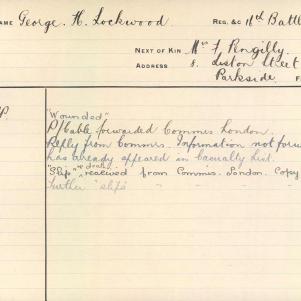 NAME George. H. Lockwood REG. &C 11th Battl
NEXT OF KIN Mrs F. Pengilly.
ADDRESS 8. Liston Street
Parkside.
"Wounded"
P/Cable forwarded Commis London.
Reply from Commis. Information not forw
has already appeared in Casualty List.
"Slip" received from Commis. London. Copy
Further "slips" " " "